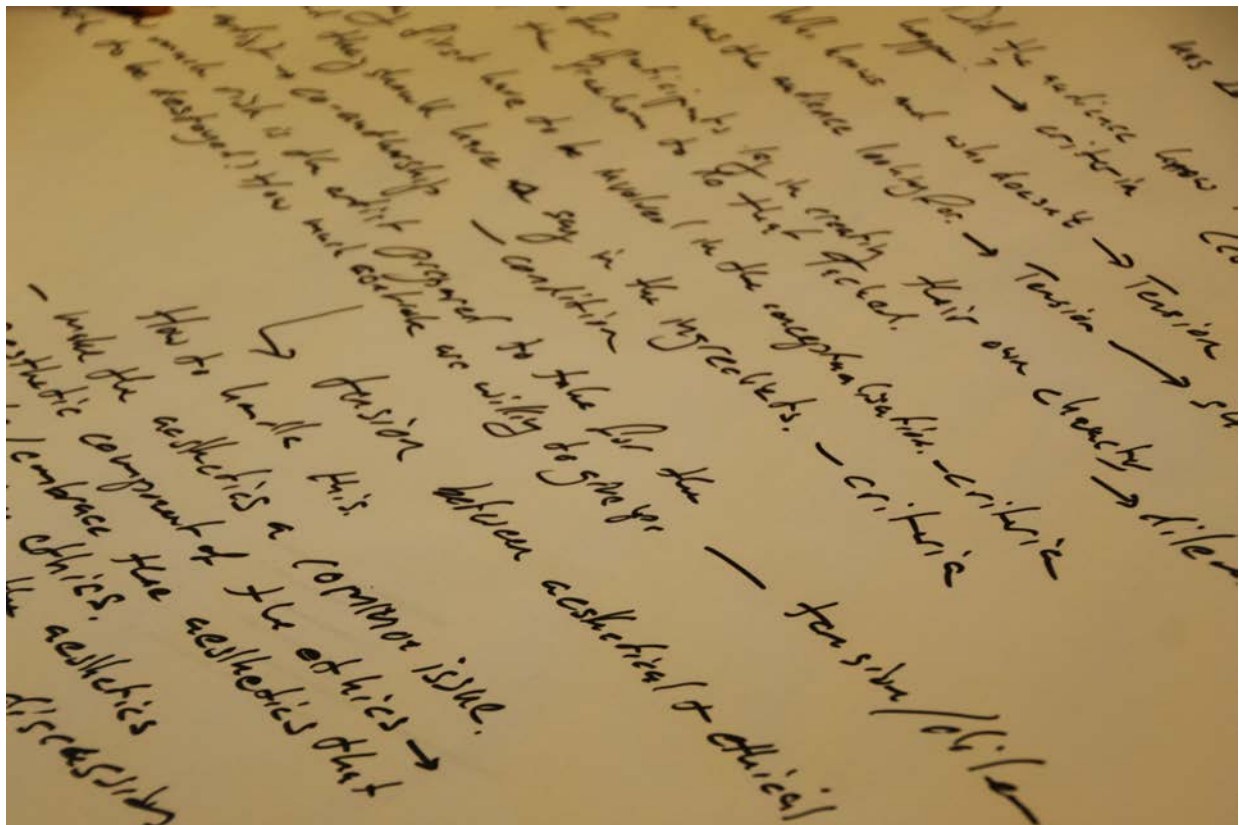 has
Did the audience know
happen? → criteria
who knows and who doesn't → Tension
was the audience looking for. → Tension →
for participants in creating their own cheracty →
the freedom to do that ticked.
first have to be involved in the conceptualization. - criteria
they should have a say in the ingredients. - criteria
artist → co-authorship - condition
much risk is the artist prepared to take for the
to be destroyed? How much aesthetic are willing to give up. — tension/dilem
tension between aesthetical + ethical
How to handle this.
- make the aesthetics a common issue.
aesthetic component of the ethics →
embrace the aesthetics that
ethics.
the aesthetics
discussion